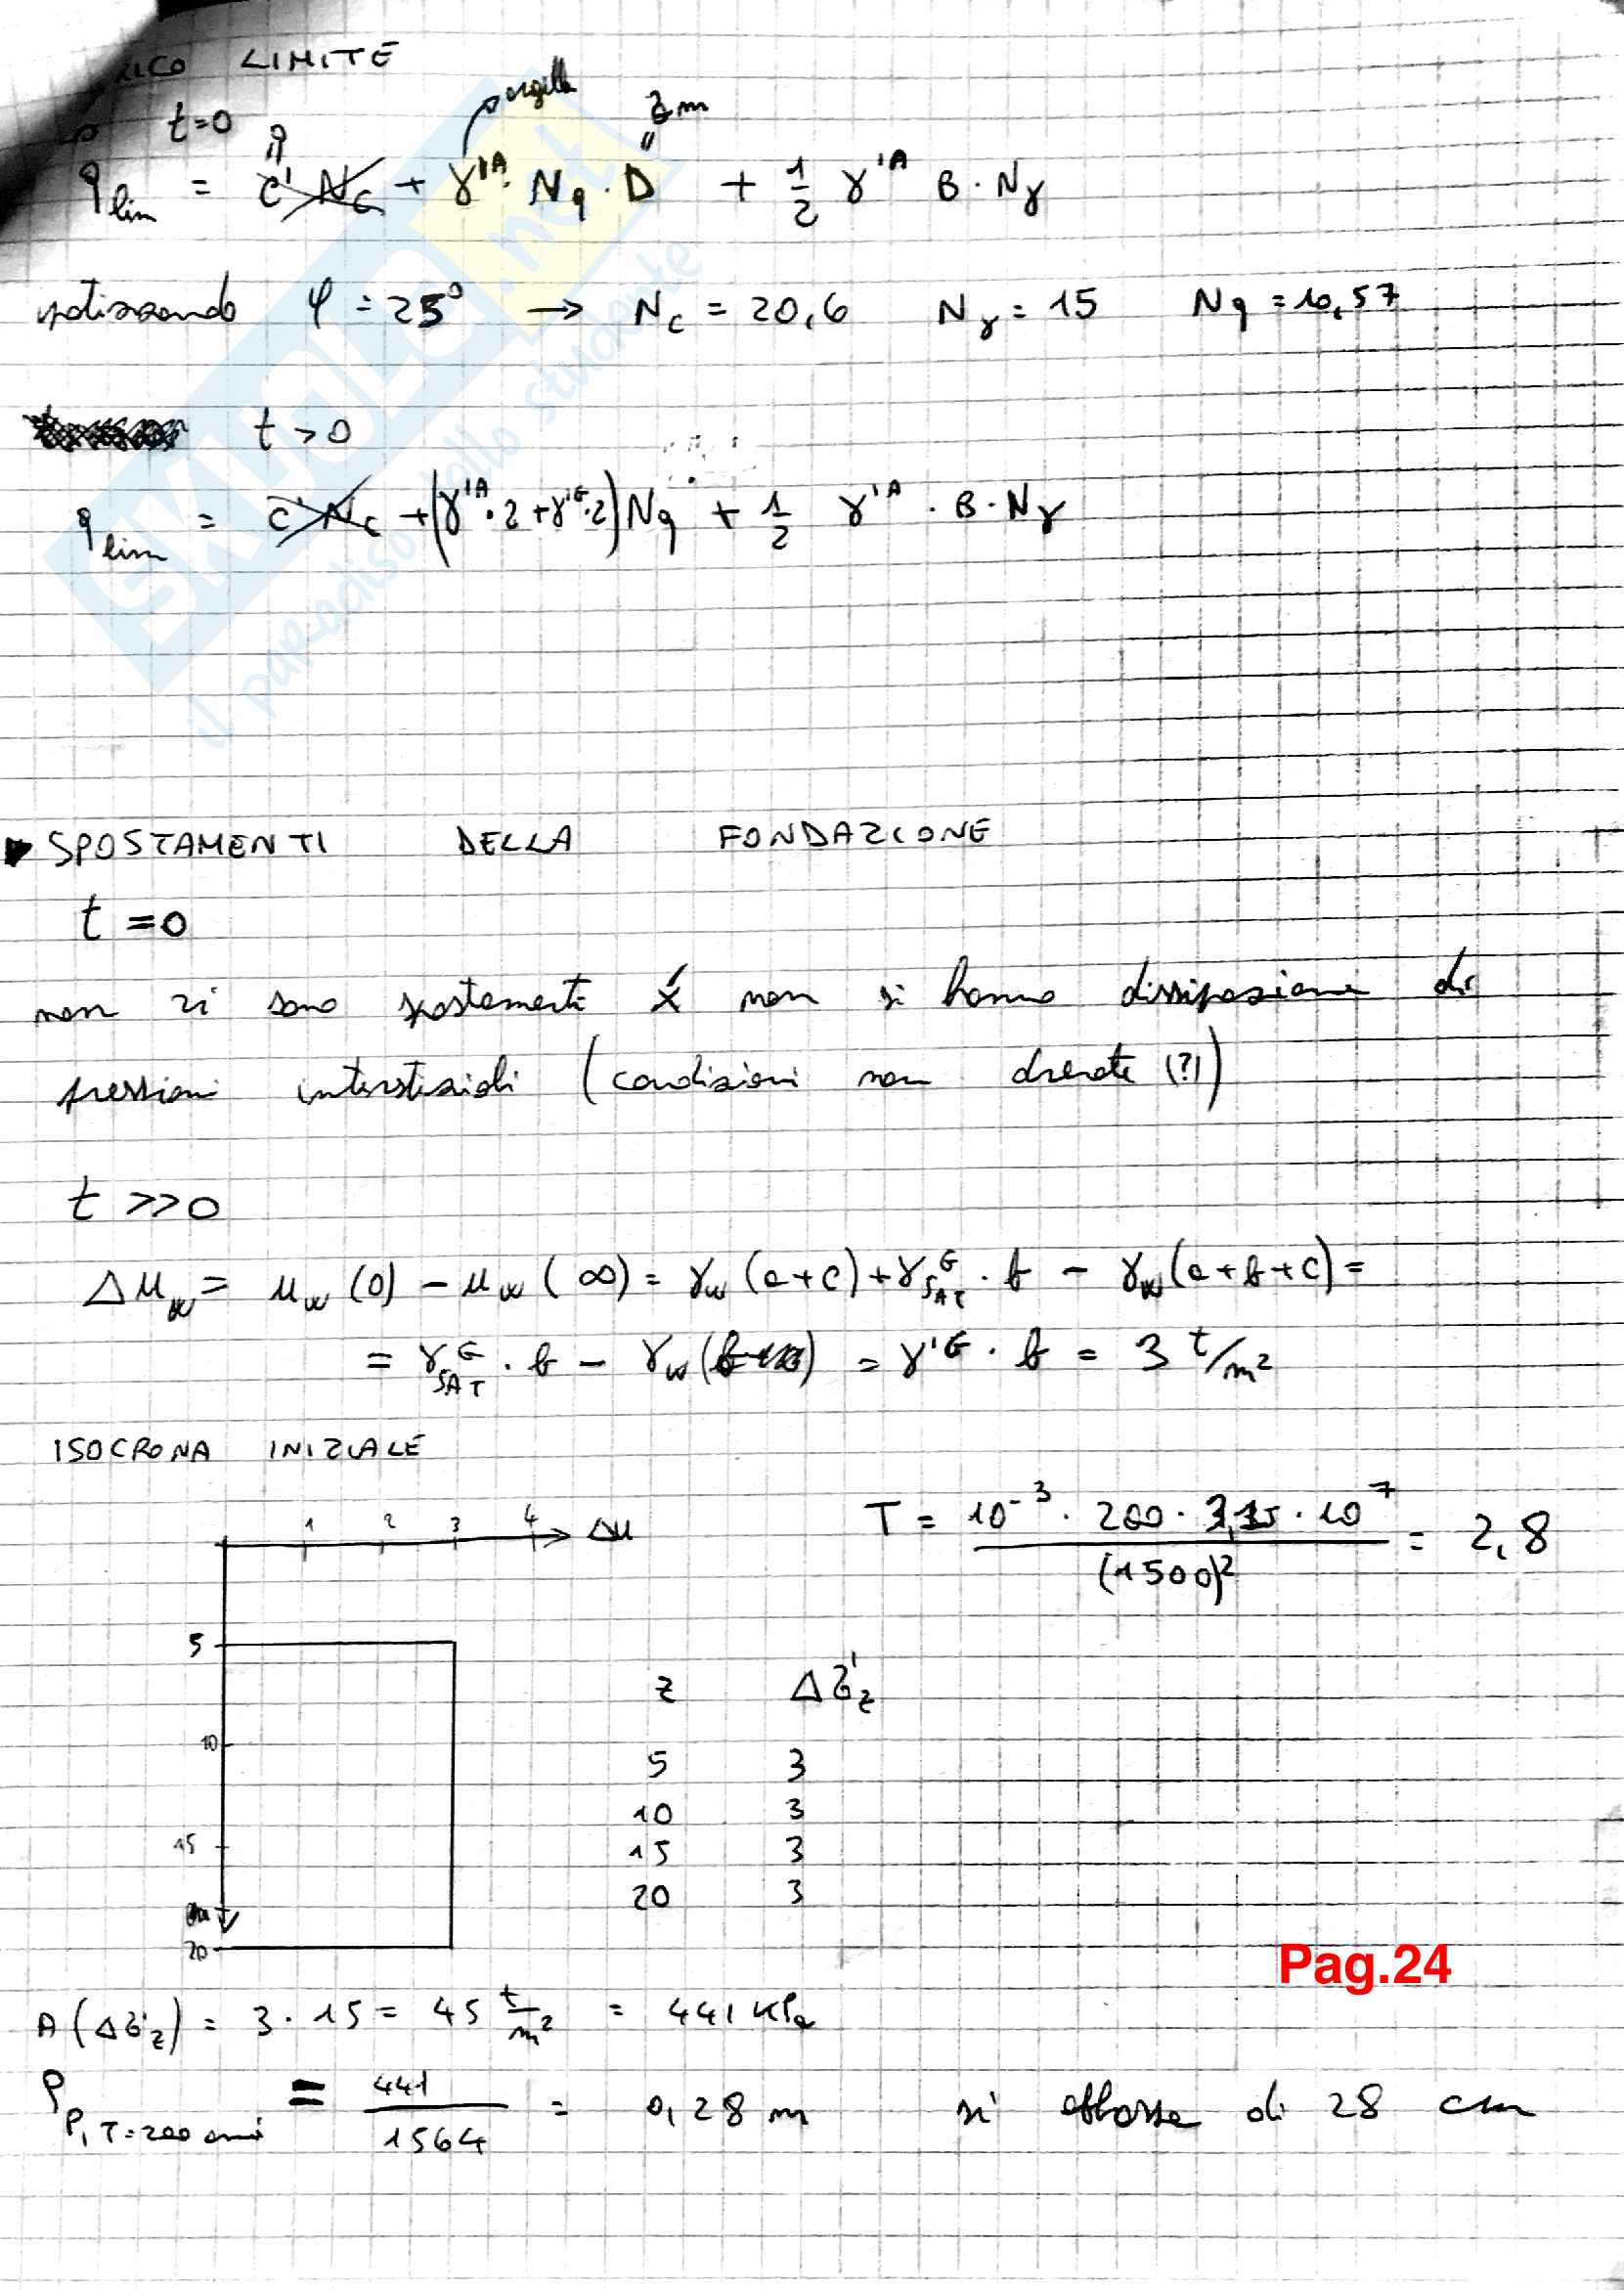 RICO LIMITE
t=0
0 argilla 2m
q lim = c' Nc + γ'A · Nq · D + 1/2 γ'A B · Nγ
φ = 25° → Nc = 20,6 Nγ = 15 Nq = 10,57
t > 0
q lim = c' Nc + (γ'A · 2 + γ'G · 2) Nq + 1/2 γ'A · B · Nγ
SPOSTAMENTI DELLA FONDAZIONE
t = 0
non vi sono spostamenti x́ non si hanno dissipazione di
pressioni interstiziali (condizioni non drenate (?))
t >> 0
Δuw = uw (0) - uw (∞) = γw (a+c) + γSAT G · b - γw (a+b+c) =
= γSAT G · b - γw (b) = γ'G · b = 3 t/m²
ISOCRONA INIZIALE
1 2 3 4 Δu
T = 10⁻³ · 200 · 3,15 · 10⁷ / (1500)² = 2,8
5
10
15
20
z Δσ'z
5 3
10 3
15 3
20 3
Pag.24
A (Δσ'z) = 3 · 15 = 45 t/m² = 441 KPa
ρ P, T=200 anni = 441 / 1564 = 0,28 m si abbassa di 28 cm
SKUOLA.net
il paradiso dello studente